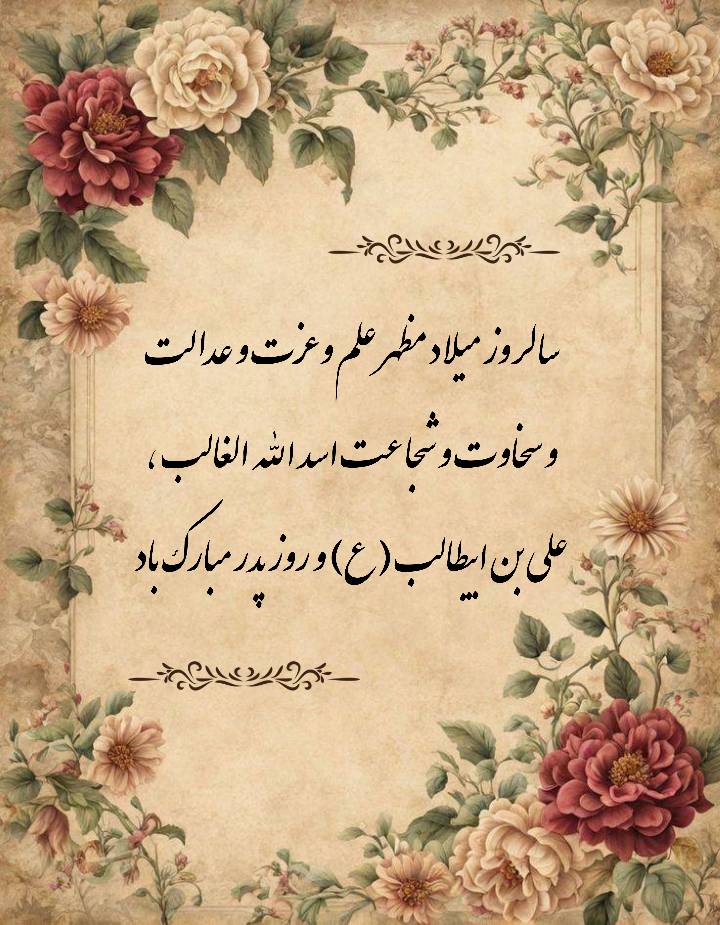 سالروز میلاد مظهر علم و عزت و عدالت
و سخاوت و شجاعت اسد الله الغالب،
علی بن ابیطالب (ع) و روز پدر مبارک باد